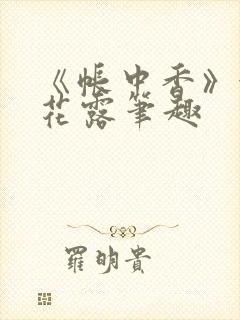 《帳中香》
花露筆趣
羅明貴